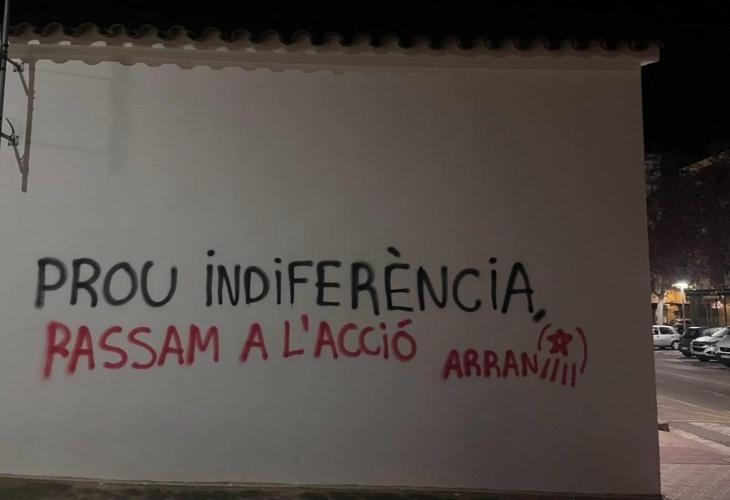 PROU INDIFERÈNCIA,
RASSAM A L'ACCIÓ
ARRAN